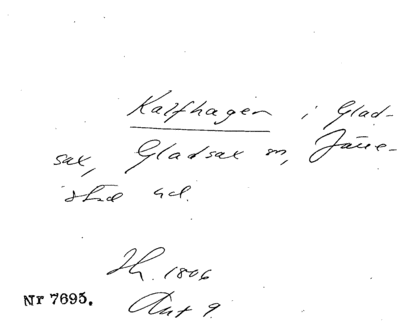 Kalfhagen i Glad-
sax, Gladsax sn, Järre-
stad hd.
Hh. 1806
Akt 9.
Nr 7695.